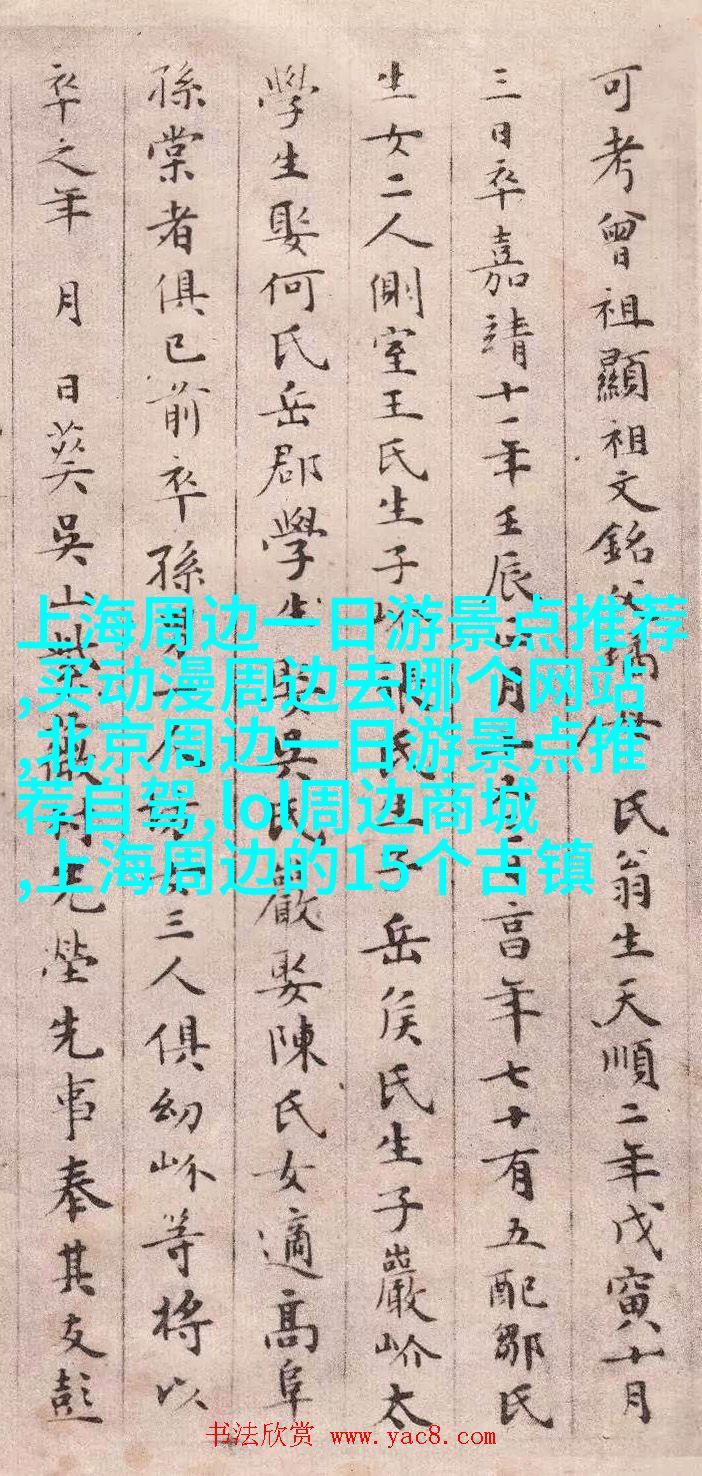 可考曾祖顯祖文銘父 氏翁生天順二年戊寅十月
三日卒嘉靖十一年壬辰 月 享年七十有五配鄒氏
生女二人側室王氏生子 氏生子岳侯氏生子巖岕太
學生娶何氏岳郡學生娶吳氏巖娶陳氏女適高阜
孫棠者俱已前卒孫男 女三人俱幼岕等將以
卒之年 月 日葬吳山 先塋先事奉其友彭
上海周边一日游景点推荐
,买动漫周边去哪个网站
,北京周边一日游景点推
荐自驾,lol周边商城
,上海周边的15个古镇
书法欣赏 www.yac8.com